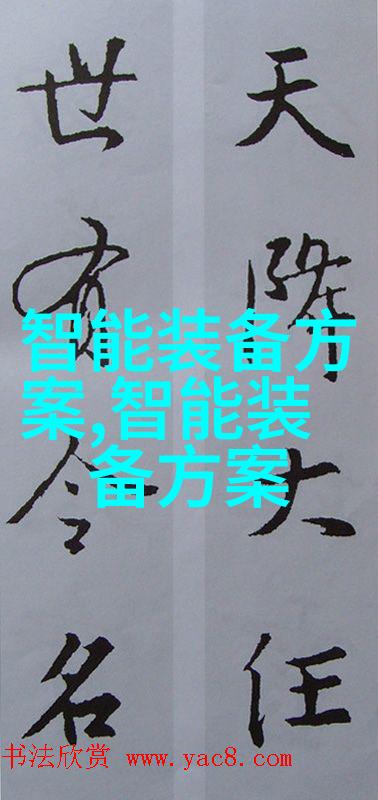 天降大任
世有令名
智能装备方
案,智能装
备方案
书法欣赏 www.yac8.com